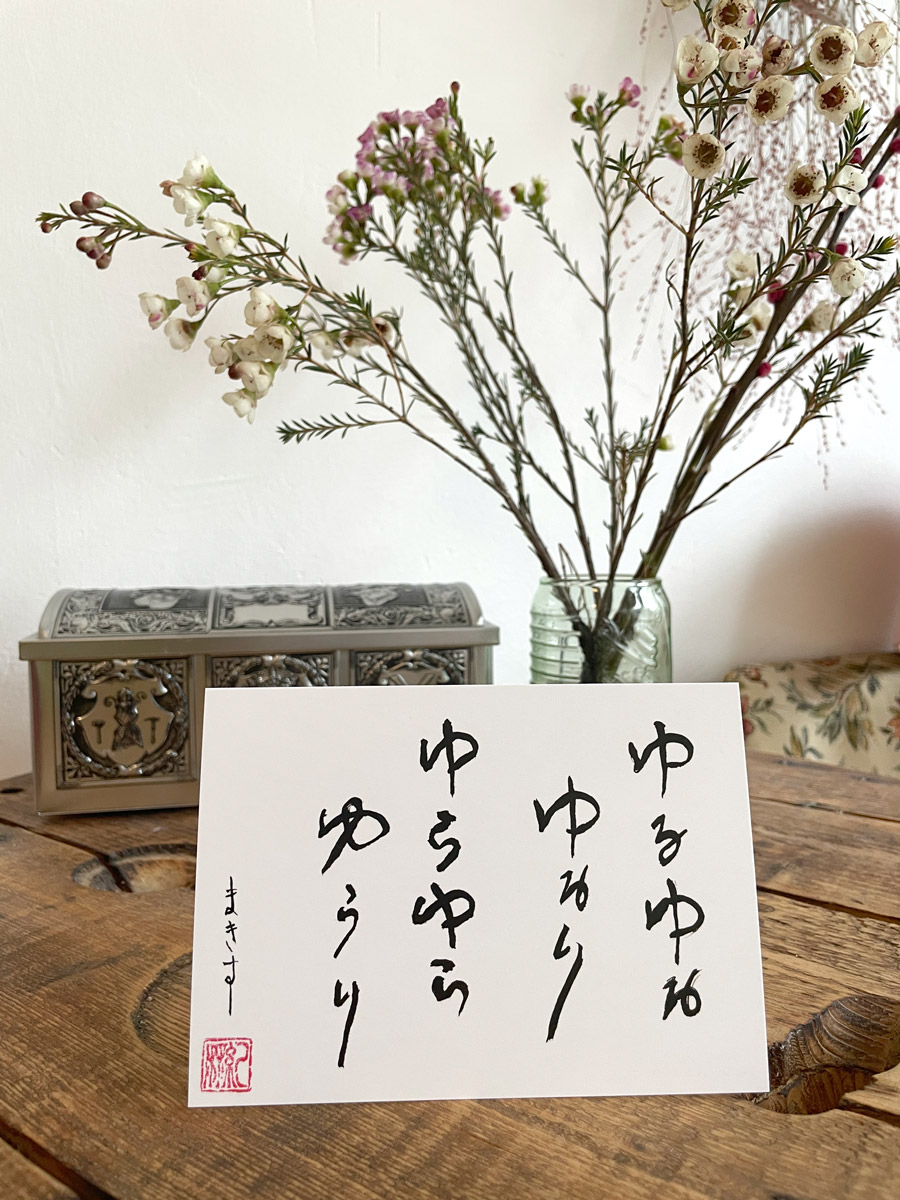 ゆるゆる
ゆるり
ゆらゆら
ゆらり
まきすー